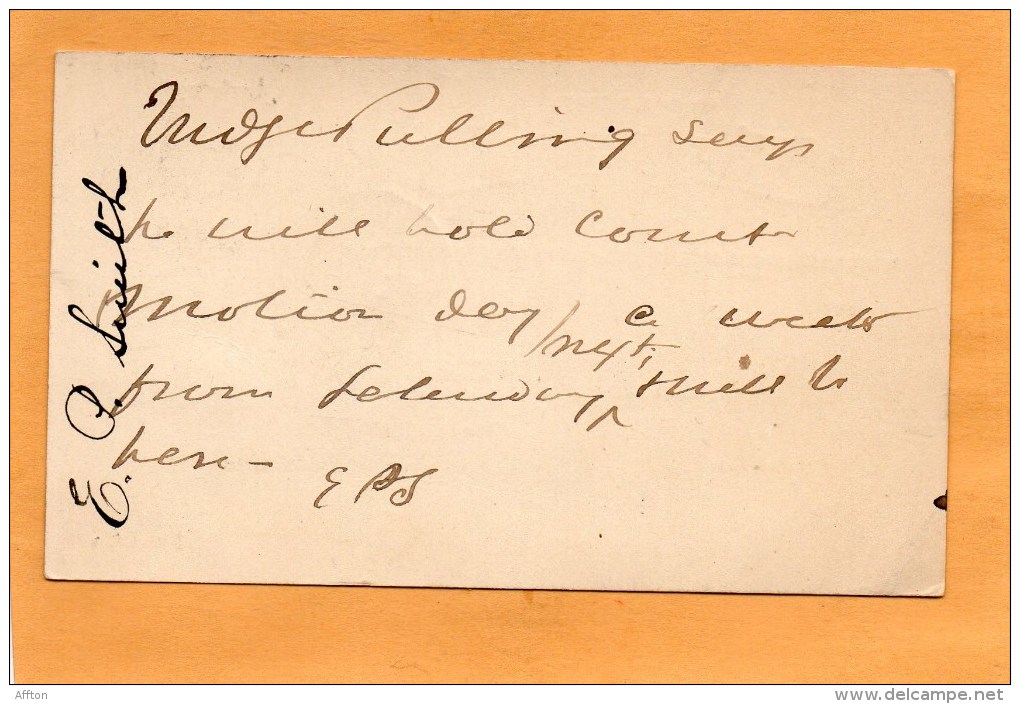 Judge Pulling says
he will hold Court
motion day a week
from Saturday /next, & will be
here -
E P S
E. P. Smith
Affton
www.delcampe.net